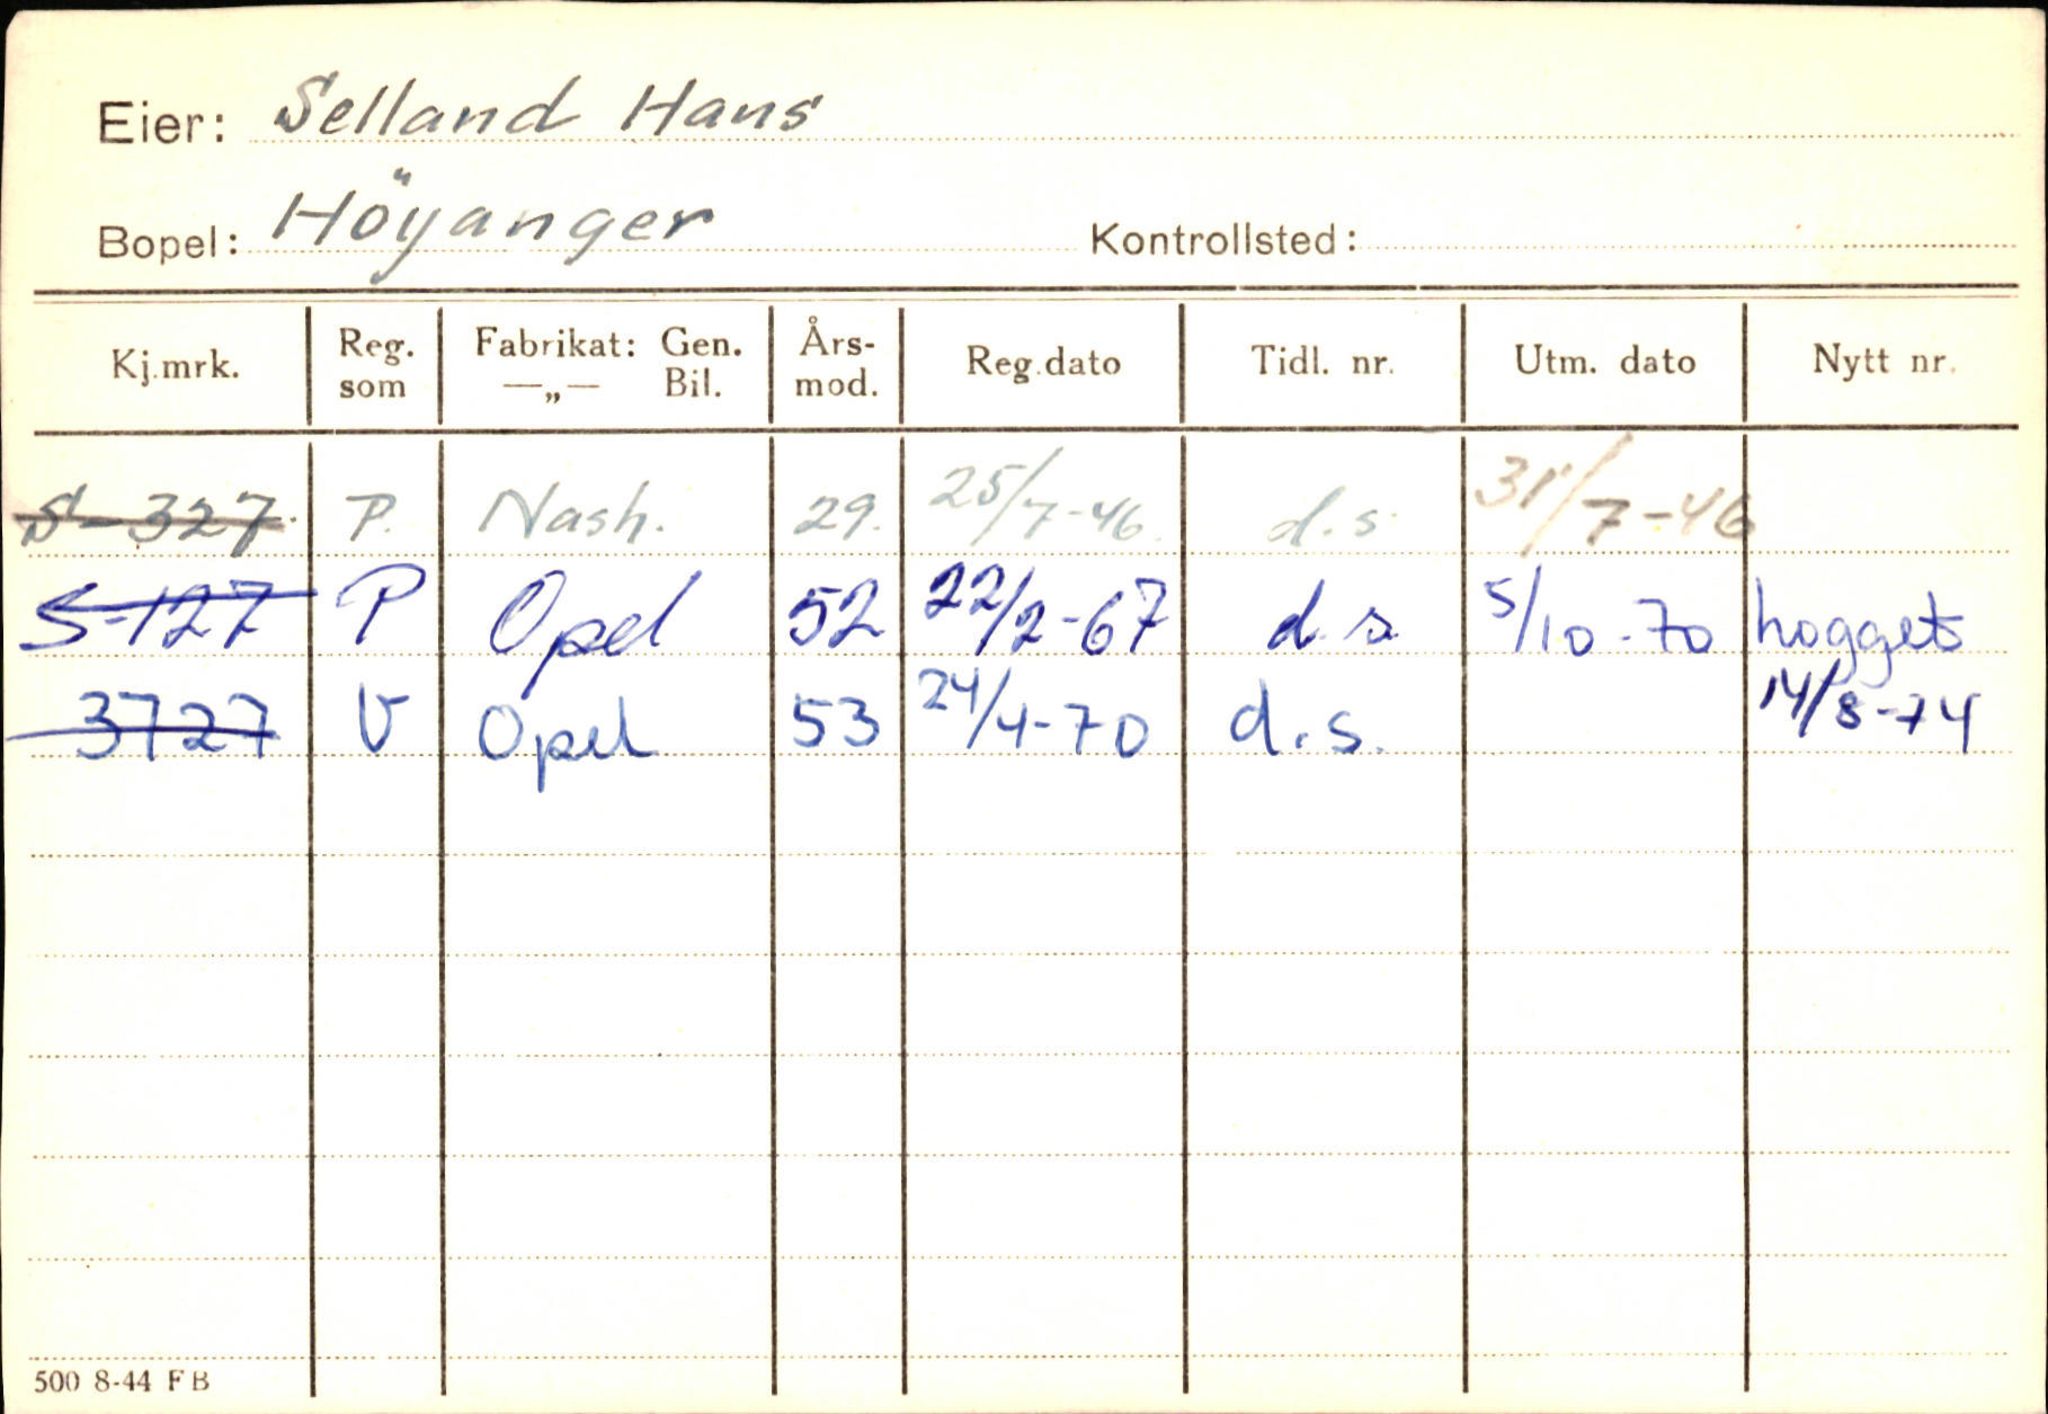 Eier: Selland Hans
Bopel: Höyanger Kontrollsted:
Kj.mrk. Reg. som Fabrikat: Gen. —„— Bil. Års- mod. Reg.dato Tidl. nr. Utm. dato Nytt nr.
S-327. P. Nash. 29. 25/7-46. d.s. 31/7-46
S-127 P Opel 52 22/2-67 d.s 5/10-70 hogget
3727 V Opel 53 24/4-70 d.s. 14/8-74
500 8-44 FB